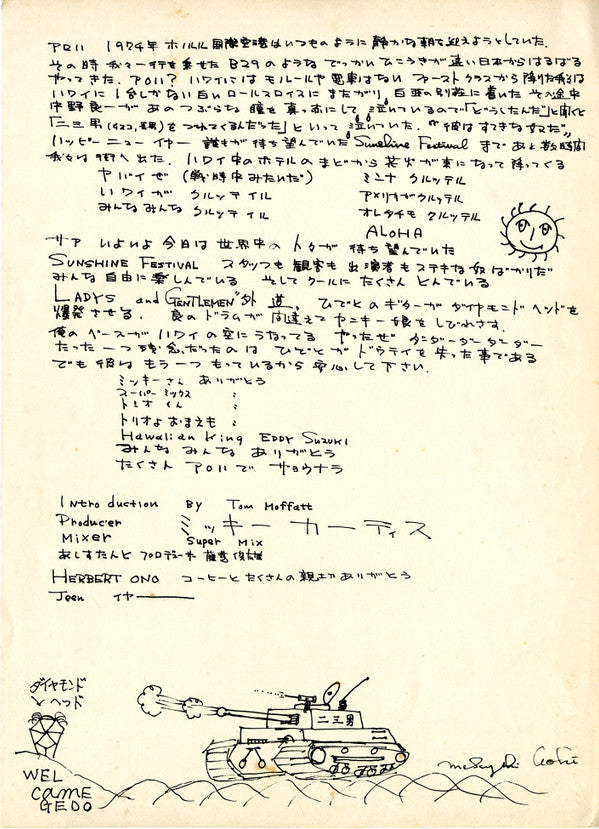 アロハ 1974年 ホノルル国際空港はいつものように静かな朝を迎えようとしていた.
その時 我々一行を乗せた B29のような でっかい ひこうきが 遠い日本からはるばる
やってきた. アロハ? ハワイには モノレールや 電車はない ファーストクラスから降りた我々は
ハワイに1台しかない白いロールスロイスにまたがり 白亜の別荘に着いた その途中
中野良一が あのつぶらな 瞳を 真っ赤にして 泣いているので「どうしたんだ」と聞くと
「二三男 をつれてくるんだった」といって 泣いていた. "彼はすてきな女だ"
ハッピーニューイヤー 誰もが待ち望んでいた Sunshine Festival まで あと数時間
我々は 街へ出た. ハワイ中のホテルのまどから 花火が束になって降ってくる
ヤバイぜ (戦時中みたいだ) ミンナ クルッテル
ハワイが クルッテイル アメリカがクルッテル
みんなみんな クルッテイル オレタチモ クルッテル
ALOHA
サア いよいよ 今日は 世界中の 人々が 待ち望んでいた
SUNSHINE FESTIVAL スタッフも 観客も 出演者も ステキな奴ばかりだ
みんな 自由に 楽しんでいる そして クールに たくさん とんでいる
LADYS and GENTLEMEN "外道" ひでとのギターが ダイヤモンドヘッドを
爆発させる. 良のドラムが 間違えて ヤンキー娘を しびれさす.
俺のベースが ハワイの空に うなってる やったぜ ダンダーダーダンダー
たった一つ残念だったのは ひでとが ドウテイを失った事である
でも 彼は もう一つ もっているから 安心して下さい.
ミッキーさん ありがとう
スーパーミックス 〃
トミオくん 〃
トリオよ おまえも 〃
Hawaiian King EDDY SUZUKI
みんな みんな ありがとう
たくさん アロハで サヨウナラ
Introduction BY Tom Moffatt
Producer ミッキーカーティス
Mixer Super Mix
あしすたんと プロデューサー
HERBERT ONO コーヒーとたくさんの親切ありがとう
Jeen イヤー――
ダイヤモンド
ヘッド
二三男
WEL
CAME
GEDO